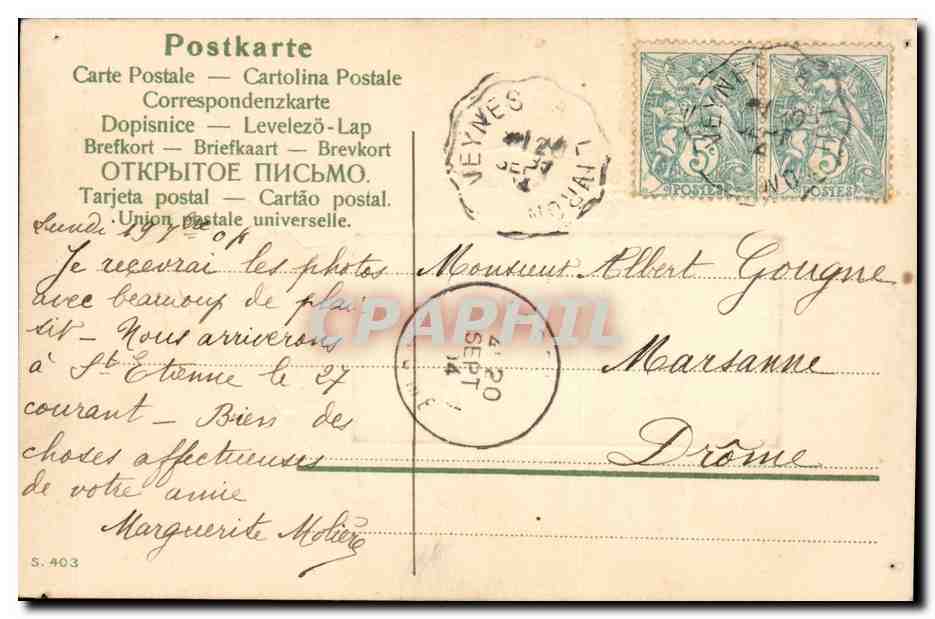 Postkarte
Carte Postale — Cartolina Postale
Correspondenzkarte
Dopisnice — Levelezö-Lap
Brefkort — Briefkaart — Brevkort
ОТКРЫТОЕ ПИСЬМО.
Tarjeta postal — Cartão postal.
Union postale universelle.
Lundi 19 7bre 04
Je reçevrai les photos
avec beaucoup de plai
sit - Nous arriverons
à St Etienne le 27
courant - Bien des
choses affectueuses
de votre amie
Marguerite Molière
S. 403
VEYNES
SEPT
POSTES
POSTES
VEYNES
Monsieur Albert Gougne
Marsanne
Drôme
4E 20
SEPT
04
CPAPHIL